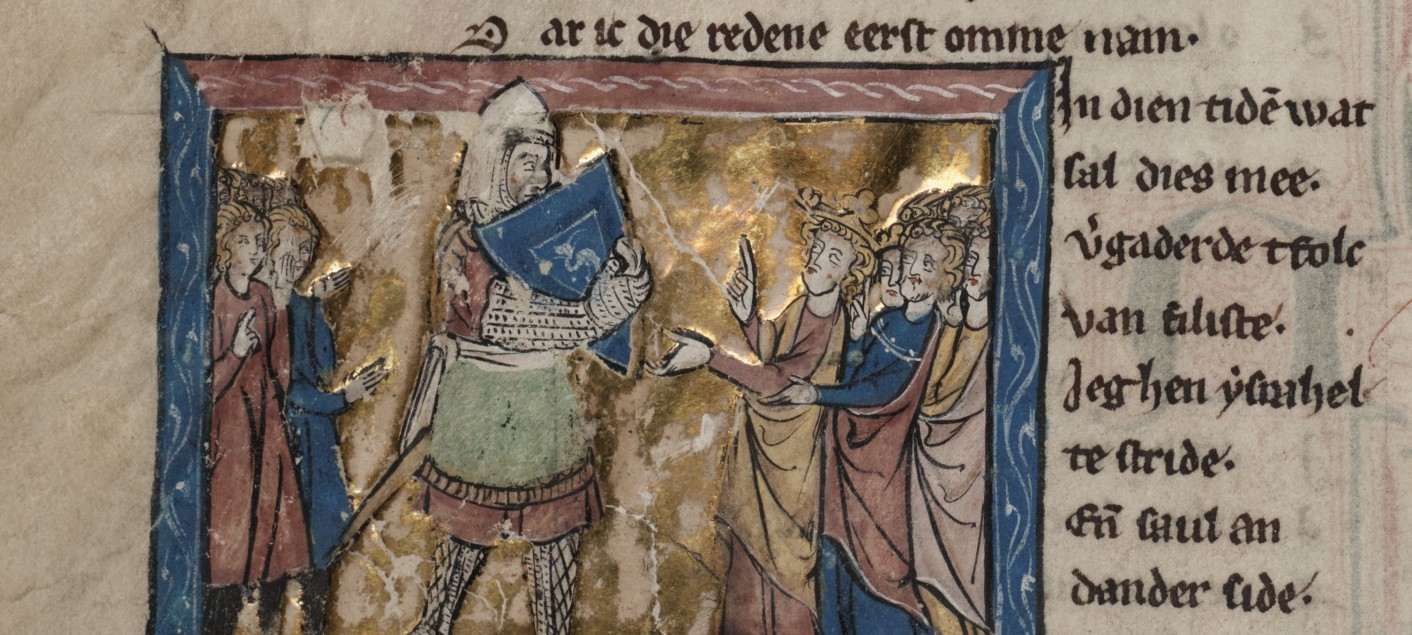 D ar ic die redene eerst omme nam·
In dien tidē wat
sal dies mee·
v̾gaderde tfolc
van filiste·
Jeghen ẏsrahel
te stride·
En̄ saul an
dander side·